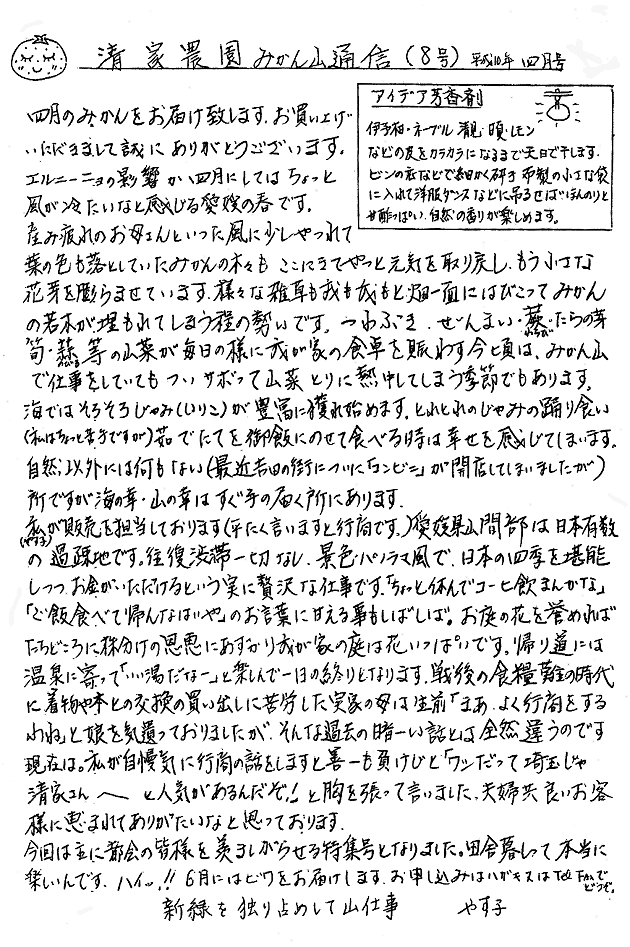 清家農園みかん山通信(8号) 平成10年 四月号
四月のみかんをお届け致します。お買い上げ
いただきまして誠にありがとうございます。
エルニーニョの影響か四月にしてはちょっと
風が冷たいなと感じる愛媛の春です。
産み疲れのお母さんといった風に少しやつれて
アイデア芳香剤
伊予柑・ネーブル・清見・甘夏・レモン
などの皮をカラカラになるまで天日で干します。
ビンの底などで細かく砕き 布製の小さな袋
に入れて洋服ダンスなどに吊るせばほんのりと
甘酸っぱい自然の香りが楽しめます。
葉の色も落としていたみかんの木々も ここにきてやっと元気を取り戻し、もう小さな
花芽を膨らませています。様々な雑草も我も我もと畑一面にはびこってみかん
の若木が埋もれてしまう程の勢いです。つわぶき、ぜんまい・蕨・たらの芽
わらび
筍・蕗等の山菜が毎日の様に我が家の食卓を賑わす今頃は、みかん山
で仕事をしていても ついサボって山菜とりに熱中してしまう季節でもあります。
海ではそろそろじゃみ(いりこ)が豊富に獲れ始めます。とれとれのじゃみの踊り食い
(私はちょっと苦手ですが)茹でたてを御飯にのせて食べる時は幸せを感じてしまいます。
自然以外には何もない(最近吉田の街についに「コンビニ」が開店してしまいましたが)
所ですが海の幸・山の幸はすぐ手の届く所にあります。
私が販売を担当しております(平たく言いますと行商です。)愛媛県山間部は日本有数
(やす子)
の過疎地です。往復渋滞一切なし、景色パノラマ風で、日本の四季を堪能
しつつお金がいただけるという実に贅沢な仕事です。「ちょっと休んでコーヒ飲まんかな」
「ご飯食べて帰んなはいや」のお言葉に甘える事もしばしば。お庭の花を誉めれば
たちどころに株分けの恩恵にあずかり我が家の庭は花いっぱいです。帰り道には
温泉に寄って「いい湯だなー」と楽しんで一日の終りとなります。戦後の食糧難の時代
に着物や本との交換の買い出しに苦労した実家の母は生前「まあ、よく行商をする
わね」と娘を気遣っておりましたが、そんな過去の暗ーい話とは全然違うのです
現在は。私が自慢気に行商の話をしますと喜一も負けじと「ワシだって埼玉じゃ
清家さん へ と人気があるんだぞ!」と胸を張って言いました。夫婦共良いお客
様に恵まれてありがたいなと思っております。
今回は主に都会の皆様を羨ましがらせる特集号となりました。田舎暮しって本当に
楽しいんです。ハイッ!! 6月にはビワをお届けします。お申し込みはハガキ又はTel Faxで
どうぞ。
新緑を独り占めして山仕事 やす子